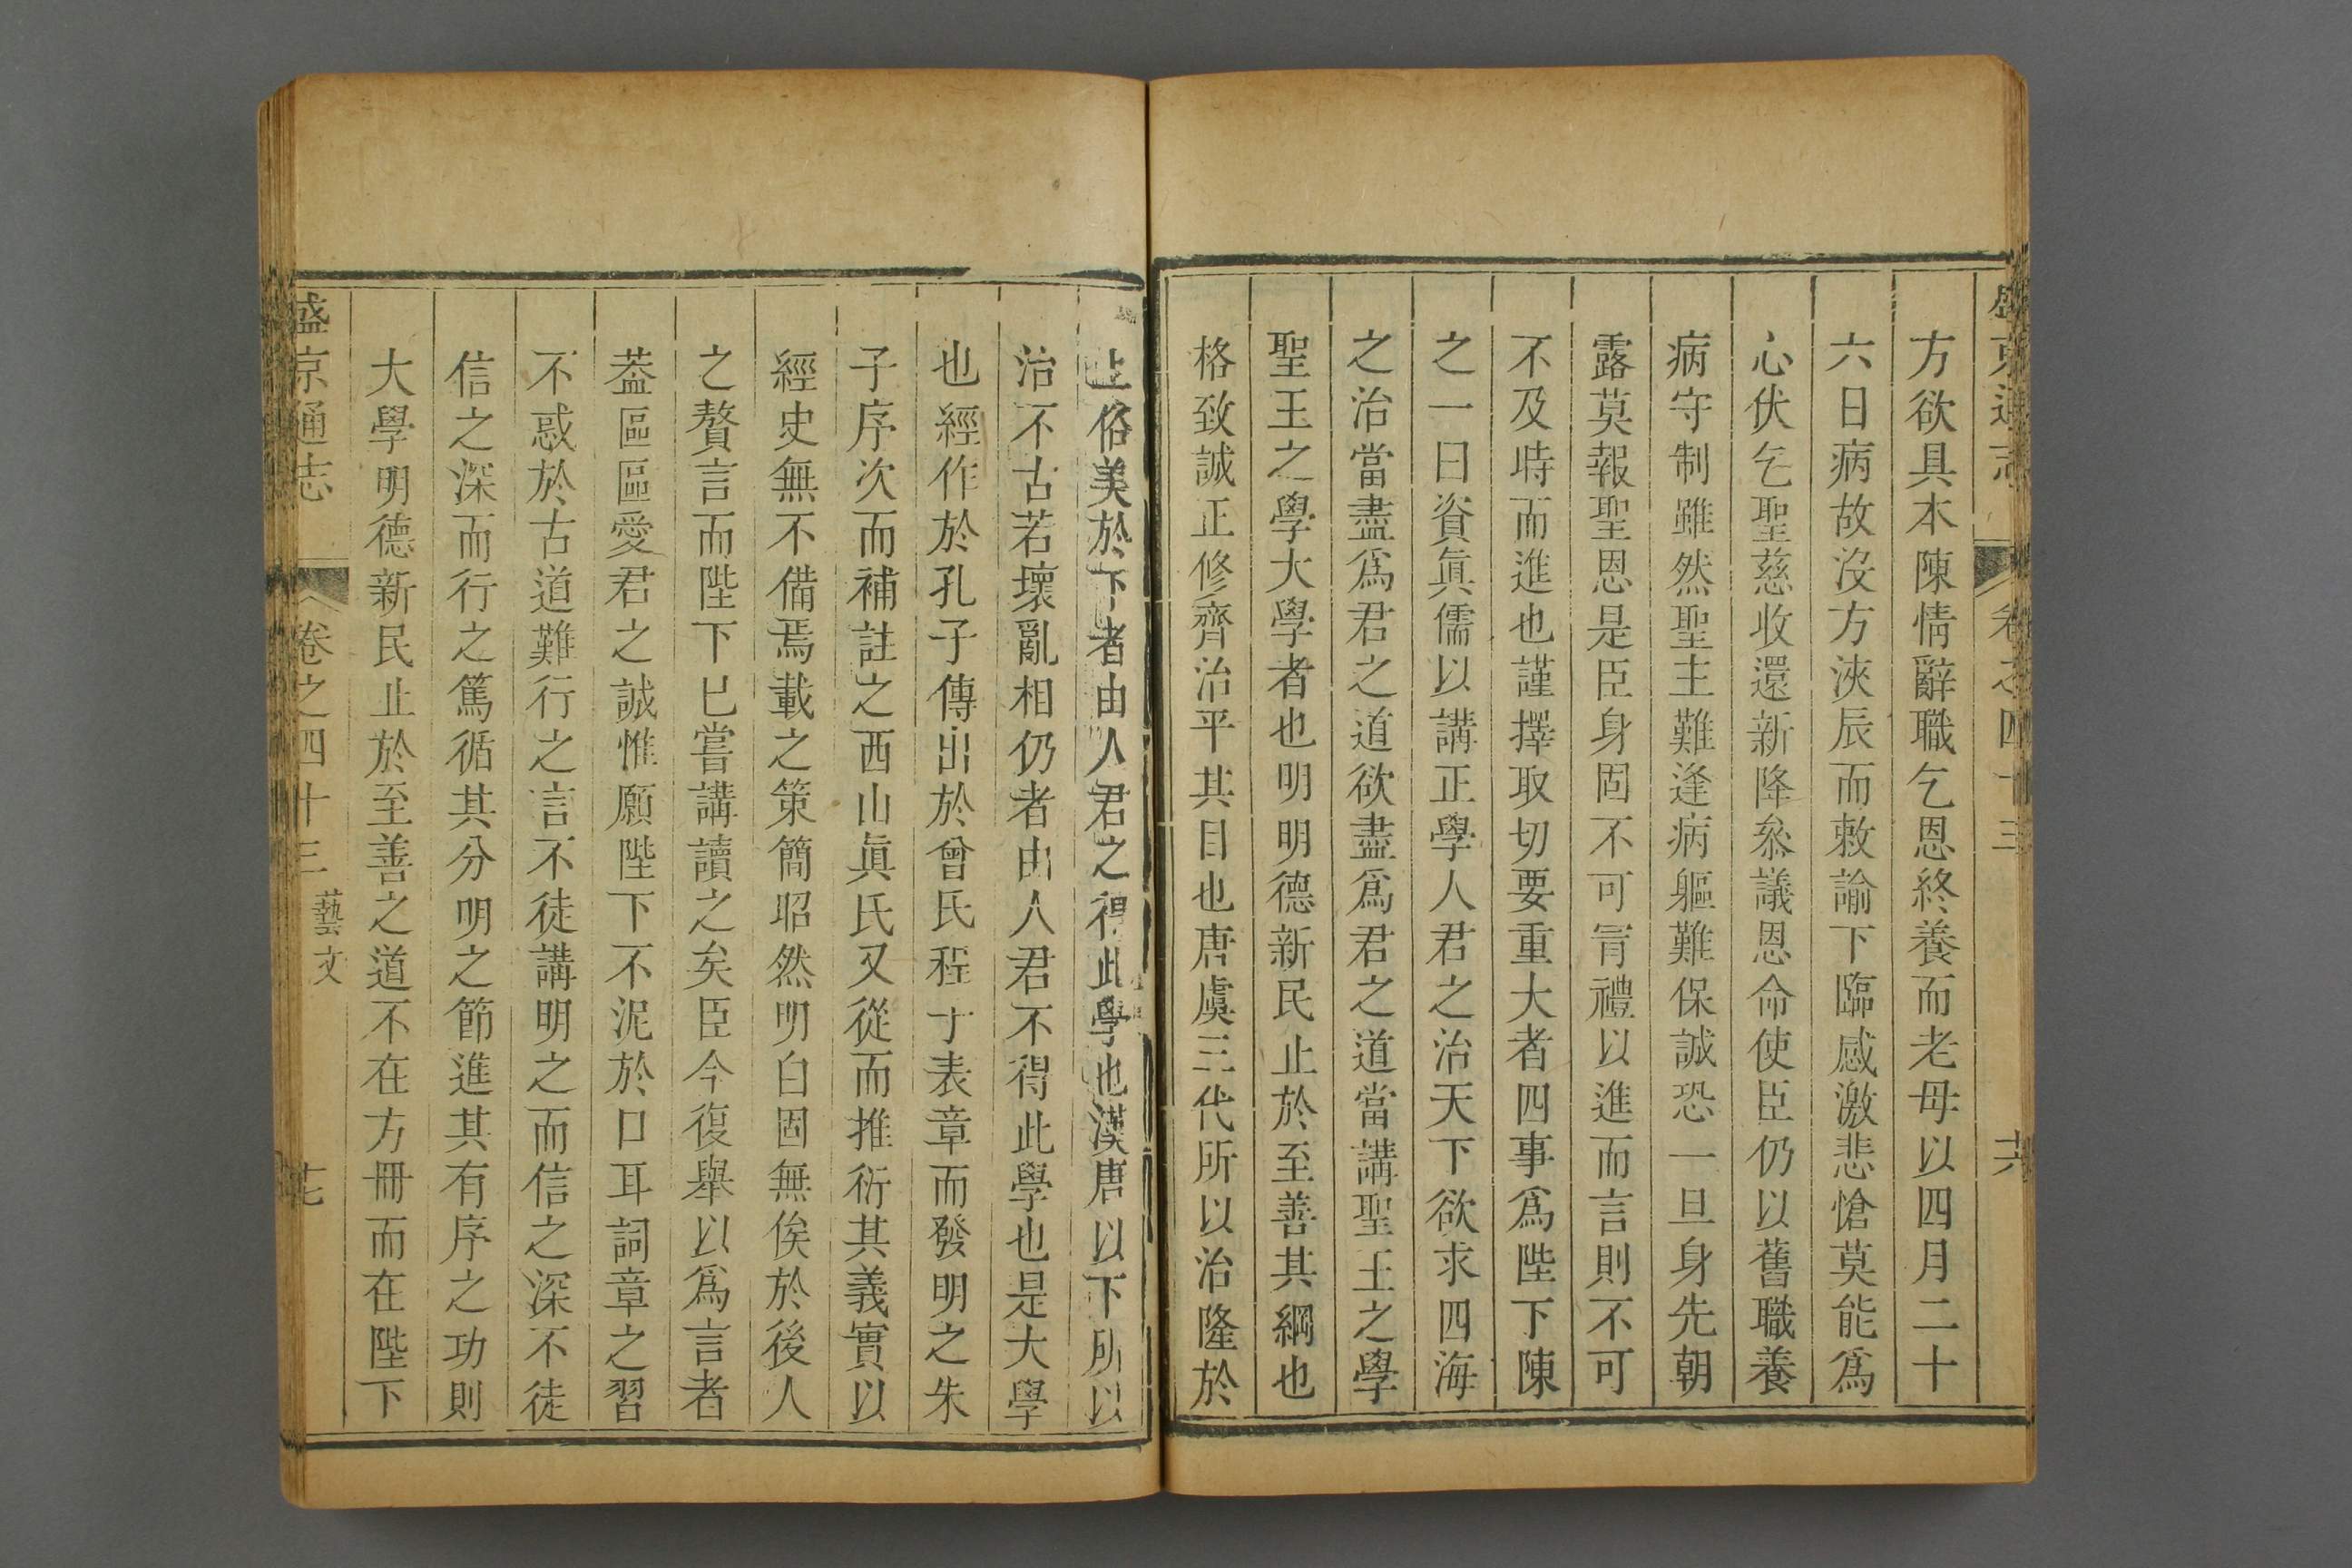 盛京通志 卷之四十三 十六
方欲具本陳情辭職乞恩終養而老母以四月二十
六日病故沒方浹辰而敕諭下臨感激悲愴莫能爲
心伏乞聖慈收還新降叅議恩命使臣仍以舊職養
病守制雖然聖主難逢病軀難保誠恐一旦身先朝
露莫報聖恩是臣身固不可冐禮以進而言則不可
不及時而進也謹擇取切要重大者四事爲陛下陳
之一曰資眞儒以講正學人君之治天下欲求四海
之治當盡爲君之道欲盡爲君之道當講聖王之學
聖王之學大學者也明明德新民止於至善其綱也
格致誠正修齊治平其目也唐虞三代所以治隆於
上俗美於下者由人君之得此學也漢唐以下所以
治不古若壞亂相仍者由人君不得此學也是大學
也經作於孔子傳出於曾氏程子表章而發明之朱
子序次而補註之西山眞氏又從而推衍其義實以
經史無不備焉載之策簡昭然明白固無俟於後人
之贅言而陛下已嘗講讀之矣臣今復舉以爲言者
葢區區愛君之誠惟願陛下不泥於口耳詞章之習
不惑於古道難行之言不徒講明之而信之深不徒
信之深而行之篤循其分明之節進其有序之功則
大學明德新民止於至善之道不在方冊而在陛下
盛京通志 卷之四十三 藝文 十七